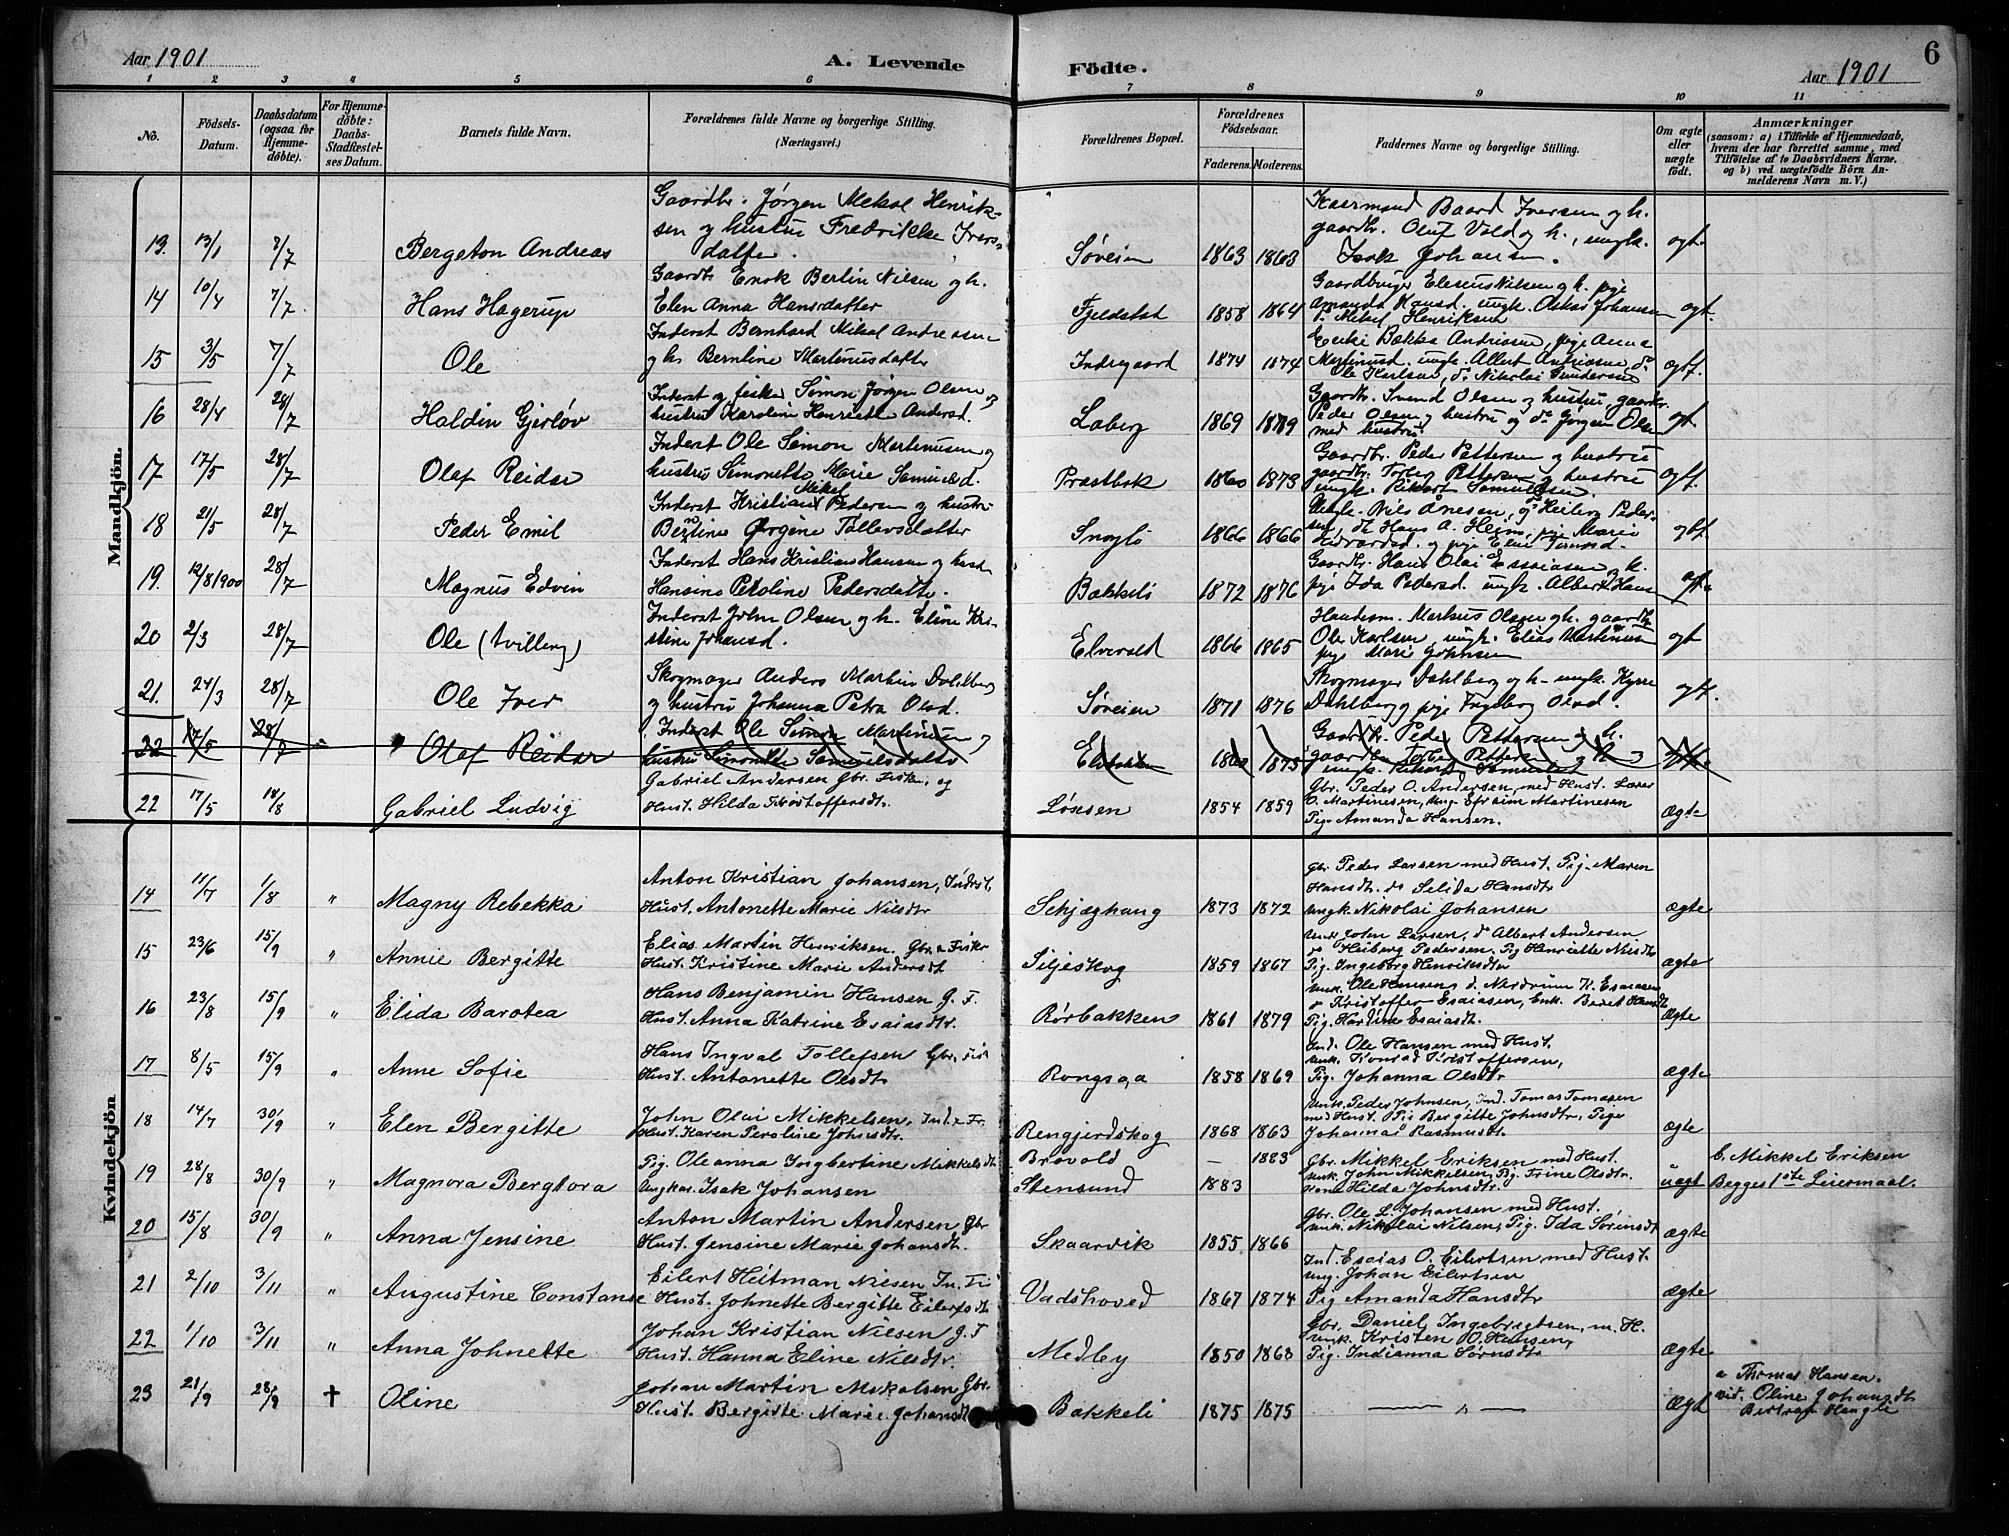 Aar 1901
A. Levende
Födte.
Aar 1901
6
1 2 3 4 5 6 7 8 9 10 11
No.
Födsels-Datum.
Daabsdatum (ogsaa for Hjemme-döbte).
For Hjemme-döbte: Daabs-Stadfæstel-ses Datum.
Barnets fulde Navn.
Forældrenes fulde Navne og borgerlige Stilling. (Næringsvei.)
Forældrenes Bopæl.
Forældrenes Födselsaar.
Faderens. Moderens.
Faddernes Navne og borgerlige Stilling.
Om ægte eller uægte födt.
Anmærkninger
(saasom: a) i Tilfælde af Hjemmedaab, hvem der har forrettet samme, med Tilföielse af to Daabsvidners Navne. og b) ved uægtefödte Börn Anmelderens Navn m. V.)
Mandkjön.
Gaardbr. Jørgen Mekal Henrik-
sen og hustru Fredrikke Ivers-
datter.
13. 13/1 7/7 Bergeton Andreas
Søveien 1863 1863
Kaarmand Baard Iversen og h.
gaardbr. Oluf Vold og h., ungk.
Isak Johansen. ægt.
14 10/4 7/7. Hans Hagerup
Gaardbr Enok Bertin Nilsen og h.
Elen Anna Hansdatter
Fjeldstad 1858 1864
Gaardbruger Eleseus Nilsen og h. pige
Amanda Hansd. ungk. Oskar Johansen
Mekal Henriksen ægt.
15 3/5 7/7 Ole
Inderst Bernhard Mikal Andreasen
og h. Berntine Martinusdatter
Indregaard 1874 1874
Enke Bækka Andriasen, pige Anna
Martinusd. ungk. Albert Andriasen do
Ole Karlsen, do Nikolai Gundersen ægt.
16 28/4 28/7 Haldin Gjerløv
Inderst og fisker Simon Jørgen Olsen og
hustru Karoline Henriette Andersd.
Laberg 1869
Gaardbr. Svend Olsen og hustru, gaardbr.
Peder Olsen og hustru og do Jørgen Olsen
med hustru. ægt.
17 17/5 28/7 Olaf Reidar
Inderst Ole Simon Martinusen og
hustru Simonette Marie Samuelsd.
Præstbak 1860 1873
Gaardbr. Peder Pettersen og hustru
gaardbr. Torberg Pettersen og hustru
ungk. Rikart Samuelsen. ægt.
18 21/5 28/7 Peder Emil
Inderst Kristian Mikal Pedersen og hustru
Berntine Jørgine Tollevsdatter
1866 1866
Ungk. Nils Anesen, do Heiberg Peder-
sen, do Hans A. Heim, pige Marie
Edvardsd. og pige Eline
19. 12/8 1900 28/7 Magnus Edvin
Inderst Hans Kristian Hansen og hustru
Hansine Petroline Pedersdatter.
Bakkeli 1872 1876
Gaardbr. Hans Olai Essaiasen og h.
pige Ida Pedersd. ungk. Albert Hansen
20 2/3 28/7 Ole (tvilling)
Inderst John Olsen og h. Eline Kri-
stine Johansd.
Elvevold 1866 1865
Handelsm. Markus Olsen og h. gaardbr.
Ole Karlsen, ungk. Elias Martinusen
pige Marie Johnsen ægt
21. 24/3 28/7 Ole Iver
Skogmager Anders Martin Dahlberg
og hustru Johanna Petra Olsd.
Søveien 1871 1876
Skogmager Dahlberg og h. ungk. Kyrre
Dahlberg og pige Ingeborg Olsd. ægt.
22 17/5 28/7 Olaf Reidar
Inderst Ole Simon Martinusen og
hustru Simonette Samuelsdatter
1860 1873
Gaardbr. Peder Pettersen og h.
gaardbr. Torberg Pettersen og h.
ungk. Rikard Samuelsen
22 17/5 18/8 Gabriel Ludvig
Gabriel Andersen Gbr. Fisker, og
Hust. Hilda Kristoffersdt.
Løksen 1854 1859
Gbr. Peder O. Andersen, med Hust. Lærer
O. Martinesen, Ung. Efraim Martinesen
Pig. Amanda Hansen. Ægte
Kvindekjön
14 11/7 1/8 " Magny Rebekka
Anton Kristian Johansen, Inderst,
Hust. Antonette Marie Nilsdtr
Schjæghaug 1873 1872
Gbr. Peder Larsen med Hust. Pig. Maren
Hansdt. do Selida Hansdtr
Ungk Nikolai Johansen ægte
15 23/6 15/9 " Annie Bergitte
Elias Martin Henriksen. Gbr. & Fisker
Hust. Kristine Marie Andersdt
Siljeskog 1859 1867
Ungk John Larsen, do Albert Andersen
do Heiberg Pedersen. Pig Henriette Nilsdtr
Pig. Ingeborg Henriksdtr ægte
16 23/8 15/9 " Elida Barotea
Hans Benjamin Hansen G. F.
Hust. Anna Katrine Esaiasdtr.
Rørbakken 1861 1879
Unk. Ole Hansen, d. Nordrum K. Esaiasen
do Kristoffer Esaiasen, Enk. Beret Hansdtr
Pig. Hardine Esaiasdt. Ægte
17 8/5 15/9 " Anne Sofie
Hans Ingval Tollefsen Gbr. Fis
Hust. Antonette Olsdtr
Rongsaa 1858 1869
Ind. Ole Hansen med Hust.
Unk. Konrad Kristoffersen,
Pig. Johanna Olsdtr ægte
18 14/7 30/9 " Elen Bergitte
John Olai Mikkelsen, Ind. & Fr.
Hust. Karen Peroline Johnsdtr.
Rengjerdskog 1868 1863
Unk. Peder Johnsen, Ind. Tomas Tomasen
med Hust. Pig Bergitte Johnsdtr, Pige
Johanna Rasmusdt. ægte
19 28/8 30/9 " Magnora Bergtora
Pig. Oleanna Ingbertine Mikkelsdt
Ungkar. Isak Johansen
Brovold — 1883
Stensund 1883
Gbr. Mikkel Eriksen med Hust.
Unk. John Mikkelsen, Pig. Trine Olsdtr.
Kone Hilda Johnsdtr. uægt
b. Mikkel Eriksen
Begges 1ste Leiermaal.
20 15/8 30/9 " Anna Jensine
Anton Martin Andersen Gbr
Hust. Jensine Marie Johansdt.
Skaarvik 1855 1866
Gbr. Ole L. Johansen med Hust.
Unk. Nikolai Nilsen, Pig. Ida Sørensdt ægte
21 2/10 3/11 " Augustine Constanse
Eilert Heitman Nilsen In. Fri
Hust. Johnette Bergitte Eilertsdt
Vadshoved 1867 1874
Ind. Esaias O. Eilertsen med Hust.
Ung. Johan Eilertsen
Pig Amanda Hansdtr ægte
22 1/10 3/11 " Anna Johnette
Johan Kristian Nilsen G. F
Hust. Hanna Eline Nilsdtr.
Medby 1850 1863
Gbr. Daniel Ingebrigtsen, m. H.
Unk. Kristen O. Hansen,
Pig. Indianna Sørnsdtr ægte
23 21/9 28/9 † Oline
Johan Martin Mekalsen Gbr.
Hust. Bergitte Marie Johansdt
Bakkeli 1875 1875 — " — ægt
a Thomas Hansen.
vid. Oline Johansdt